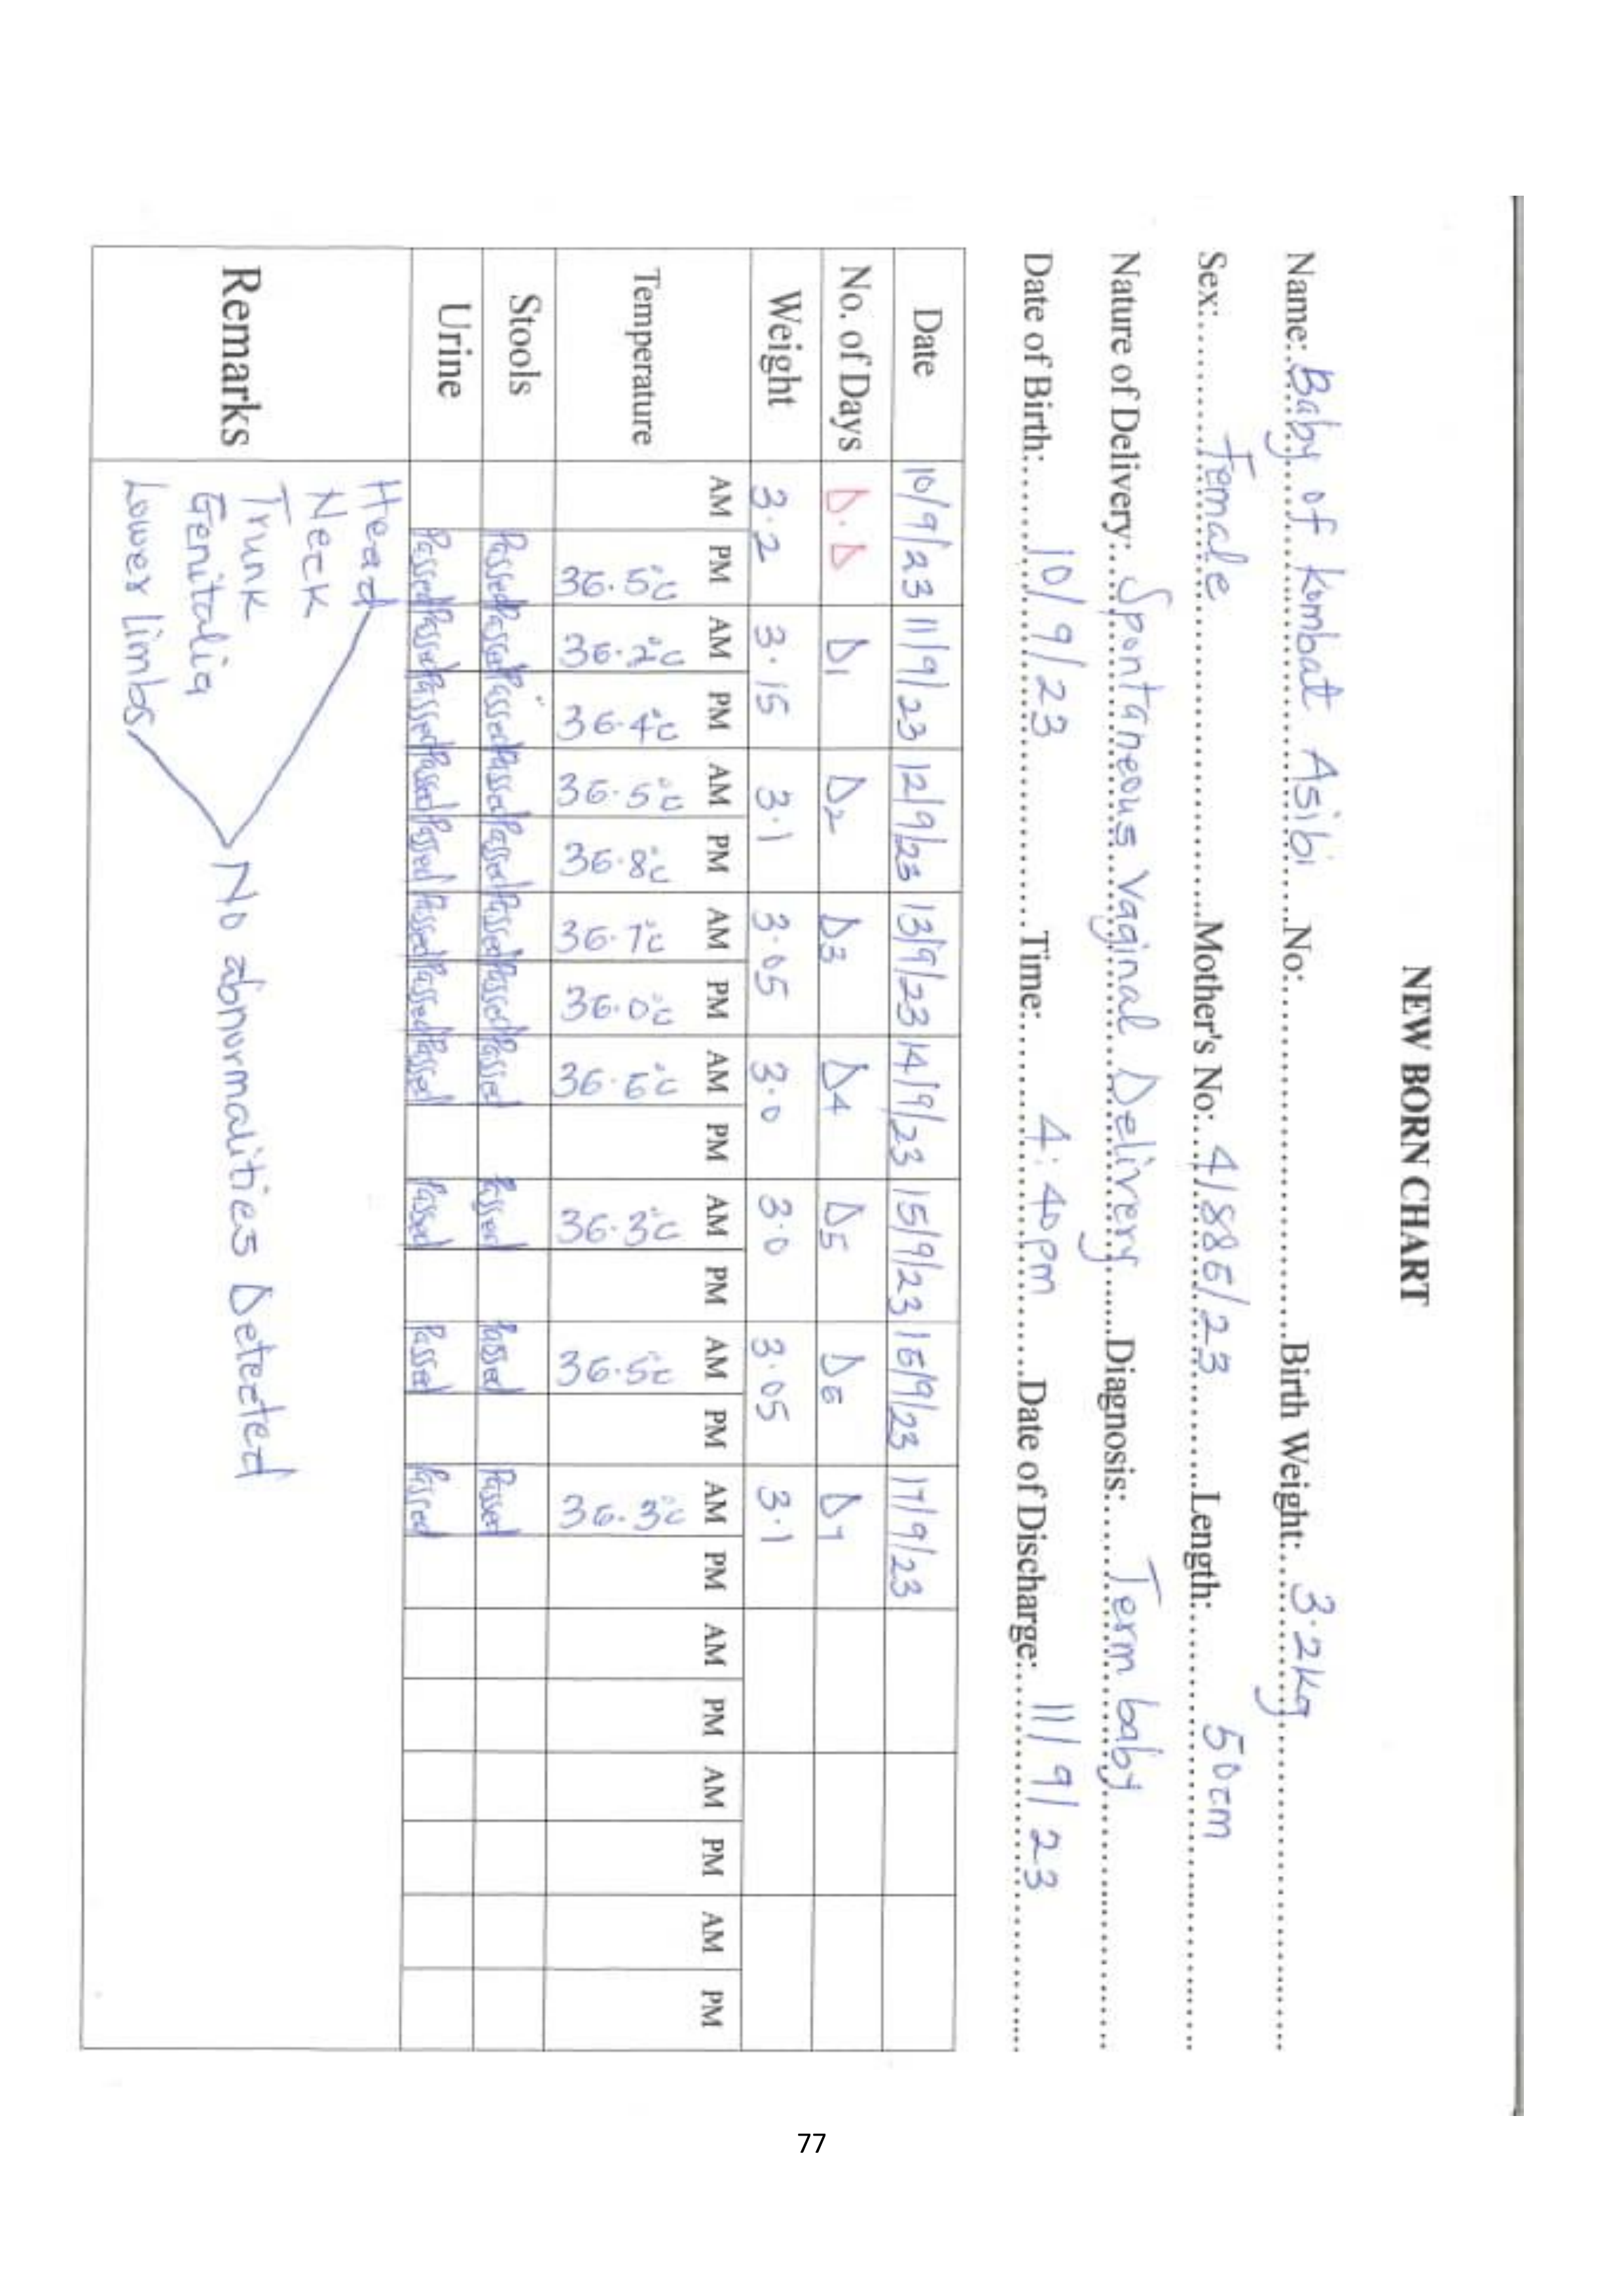 NEW BORN CHART
Name: Baby of Kombat Asibi No: Birth Weight: 3.2kg
Sex: Female Mother's No: 4/886/23 Length: 50cm
Nature of Delivery: Spontaneous Vaginal Delivery Diagnosis: Term baby
Date of Birth: 10/9/23 Time: 4:40pm Date of Discharge: 11/9/23
Date 10/9/23 11/9/23 12/9/23 13/9/23 14/9/23 15/9/23 16/9/23 17/9/23
No. of Days D.D D1 D2 D3 D4 D5 D6 D7
Weight 3.2 3.15 3.1 3.05 3.0 3.0 3.05 3.1
AM PM AM PM AM PM AM PM AM PM AM PM AM PM AM PM AM PM AM PM AM PM
Temperature 36.5°c 36.2°c 36.4°c 36.5°c 36.8°c 36.7°c 36.0°c 36.6°c 36.3°c 36.5°c 36.3°c
Stools Passed Passed Passed Passed Passed Passed Passed Passed Passed Passed Passed
Urine Passed Passed Passed Passed Passed Passed Passed Passed Passed Passed Passed
Remarks
Head
Neck
Trunk
Genitalia
Lower limbs
No abnormalities Detected
77